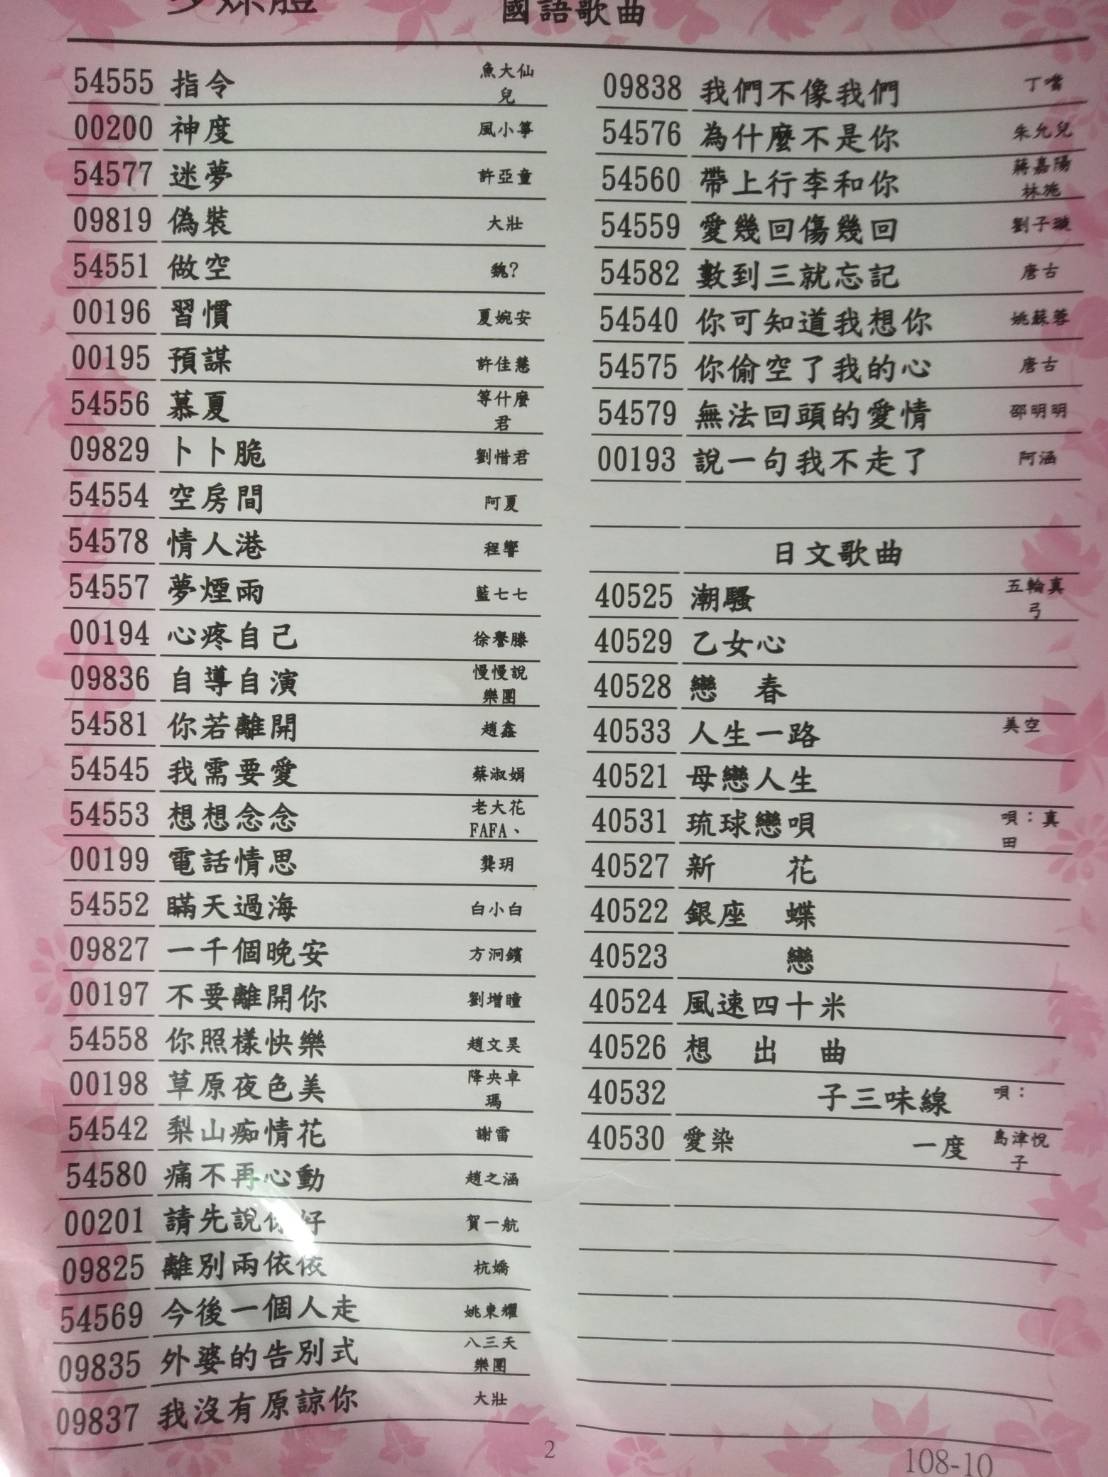 多媒體
國語歌曲
54555 指令 魚大仙兒
00200 神度 風小箏
54577 迷夢 許亞童
09819 偽裝 大壯
54551 做空 魏?
00196 習慣 夏婉安
00195 預謀 許佳慧
54556 慕夏 等什麼君
09829 卜卜脆 劉惜君
54554 空房間 阿夏
54578 情人港 程響
54557 夢煙雨 藍七七
00194 心疼自己 徐譽滕
09836 自導自演 慢慢說樂團
54581 你若離開 趙鑫
54545 我需要愛 蔡淑娟
54553 想想念念 老大花FAFA、
00199 電話情思 龔玥
54552 瞞天過海 白小白
09827 一千個晚安 方泂鑌
00197 不要離開你 劉增瞳
54558 你照樣快樂 趙文昊
00198 草原夜色美 降央卓瑪
54542 梨山痴情花 謝雷
54580 痛不再心動 趙之涵
00201 請先說你好 賀一航
09825 離別兩依依 杭嬌
54569 今後一個人走 姚東耀
09835 外婆的告別式 八三夭樂團
09837 我沒有原諒你 大壯
09838 我們不像我們 丁噹
54576 為什麼不是你 朱允兒
54560 帶上行李和你 蔣嘉陽 林施
54559 愛幾回傷幾回 劉子璇
54582 數到三就忘記 唐古
54540 你可知道我想你 姚蘇蓉
54575 你偷空了我的心 唐古
54579 無法回頭的愛情 邵明明
00193 說一句我不走了 阿涵
日文歌曲
40525 潮騷 五輪真弓
40529 乙女心
40528 戀　春
40533 人生一路 美空
40521 母戀人生
40531 琉球戀唄 唄：真田
40527 新　　花
40522 銀座　蝶
40523 　　　戀
40524 風速四十米
40526 想　出　曲
40532 　　　　子三味線 唄：
40530 愛染　　　　　一度 島津悅子
2
108-10